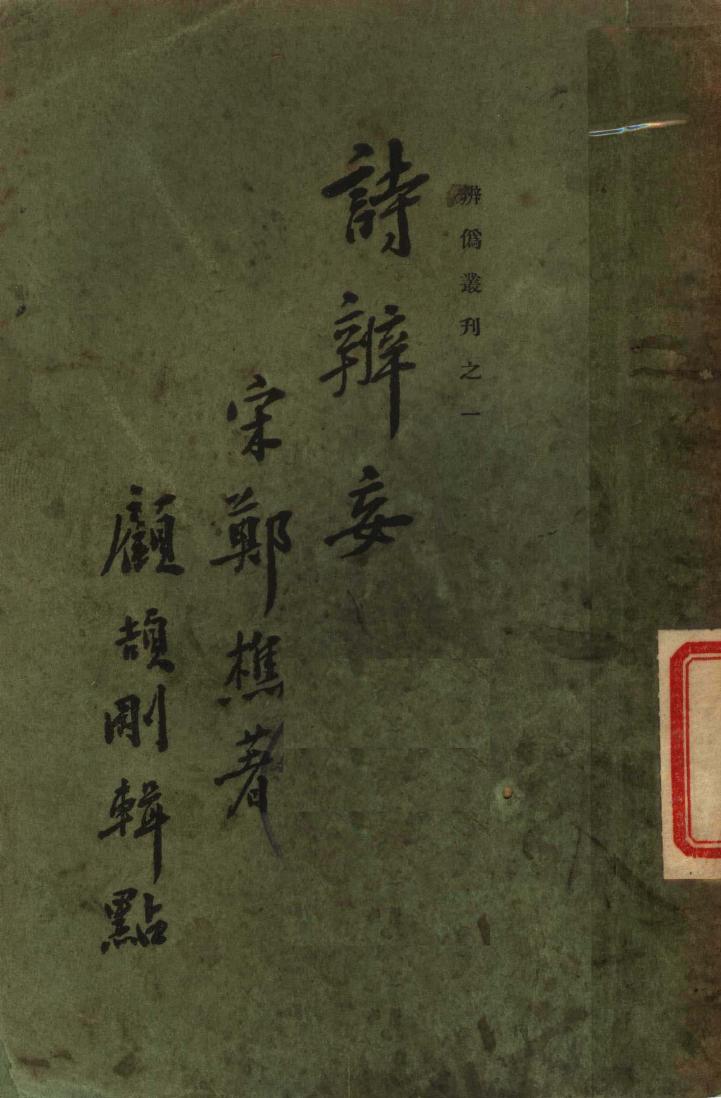 辨僞叢刊之一
詩辨妄
宋鄭樵著
顧頡剛輯點